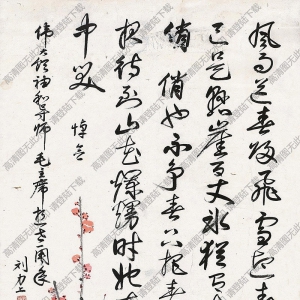 风雨送春归飞雪迎春
已是悬崖百丈冰犹有
俏俏也不争春只把春
报待到山花烂漫时她在
中笑
悼念
伟大领袖和导师毛主席逝世周年
刘力上